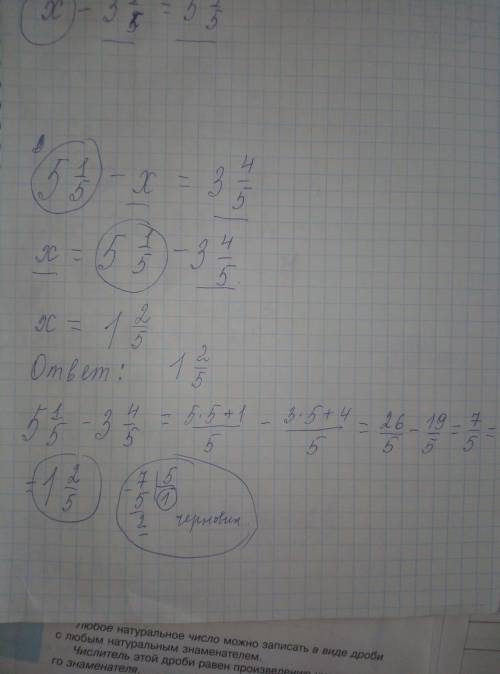 x - 3 1/5 = 5 1/5
5 1/5 - x = 3 4/5
x = 5 1/5 - 3 4/5
x = 1 2/5
Ответ: 1 2/5
5 1/5 - 3 4/5 = 5·5+1/5 - 3·5+4/5 = 26/5 - 19/5 = 7/5 =
= 1 2/5
7 | 5
5 | 1
2 черновик
Любое натуральное число можно записать в виде дроби
с любым натуральным знаменателем.
Числитель этой дроби равен произведению
го знаменателя.